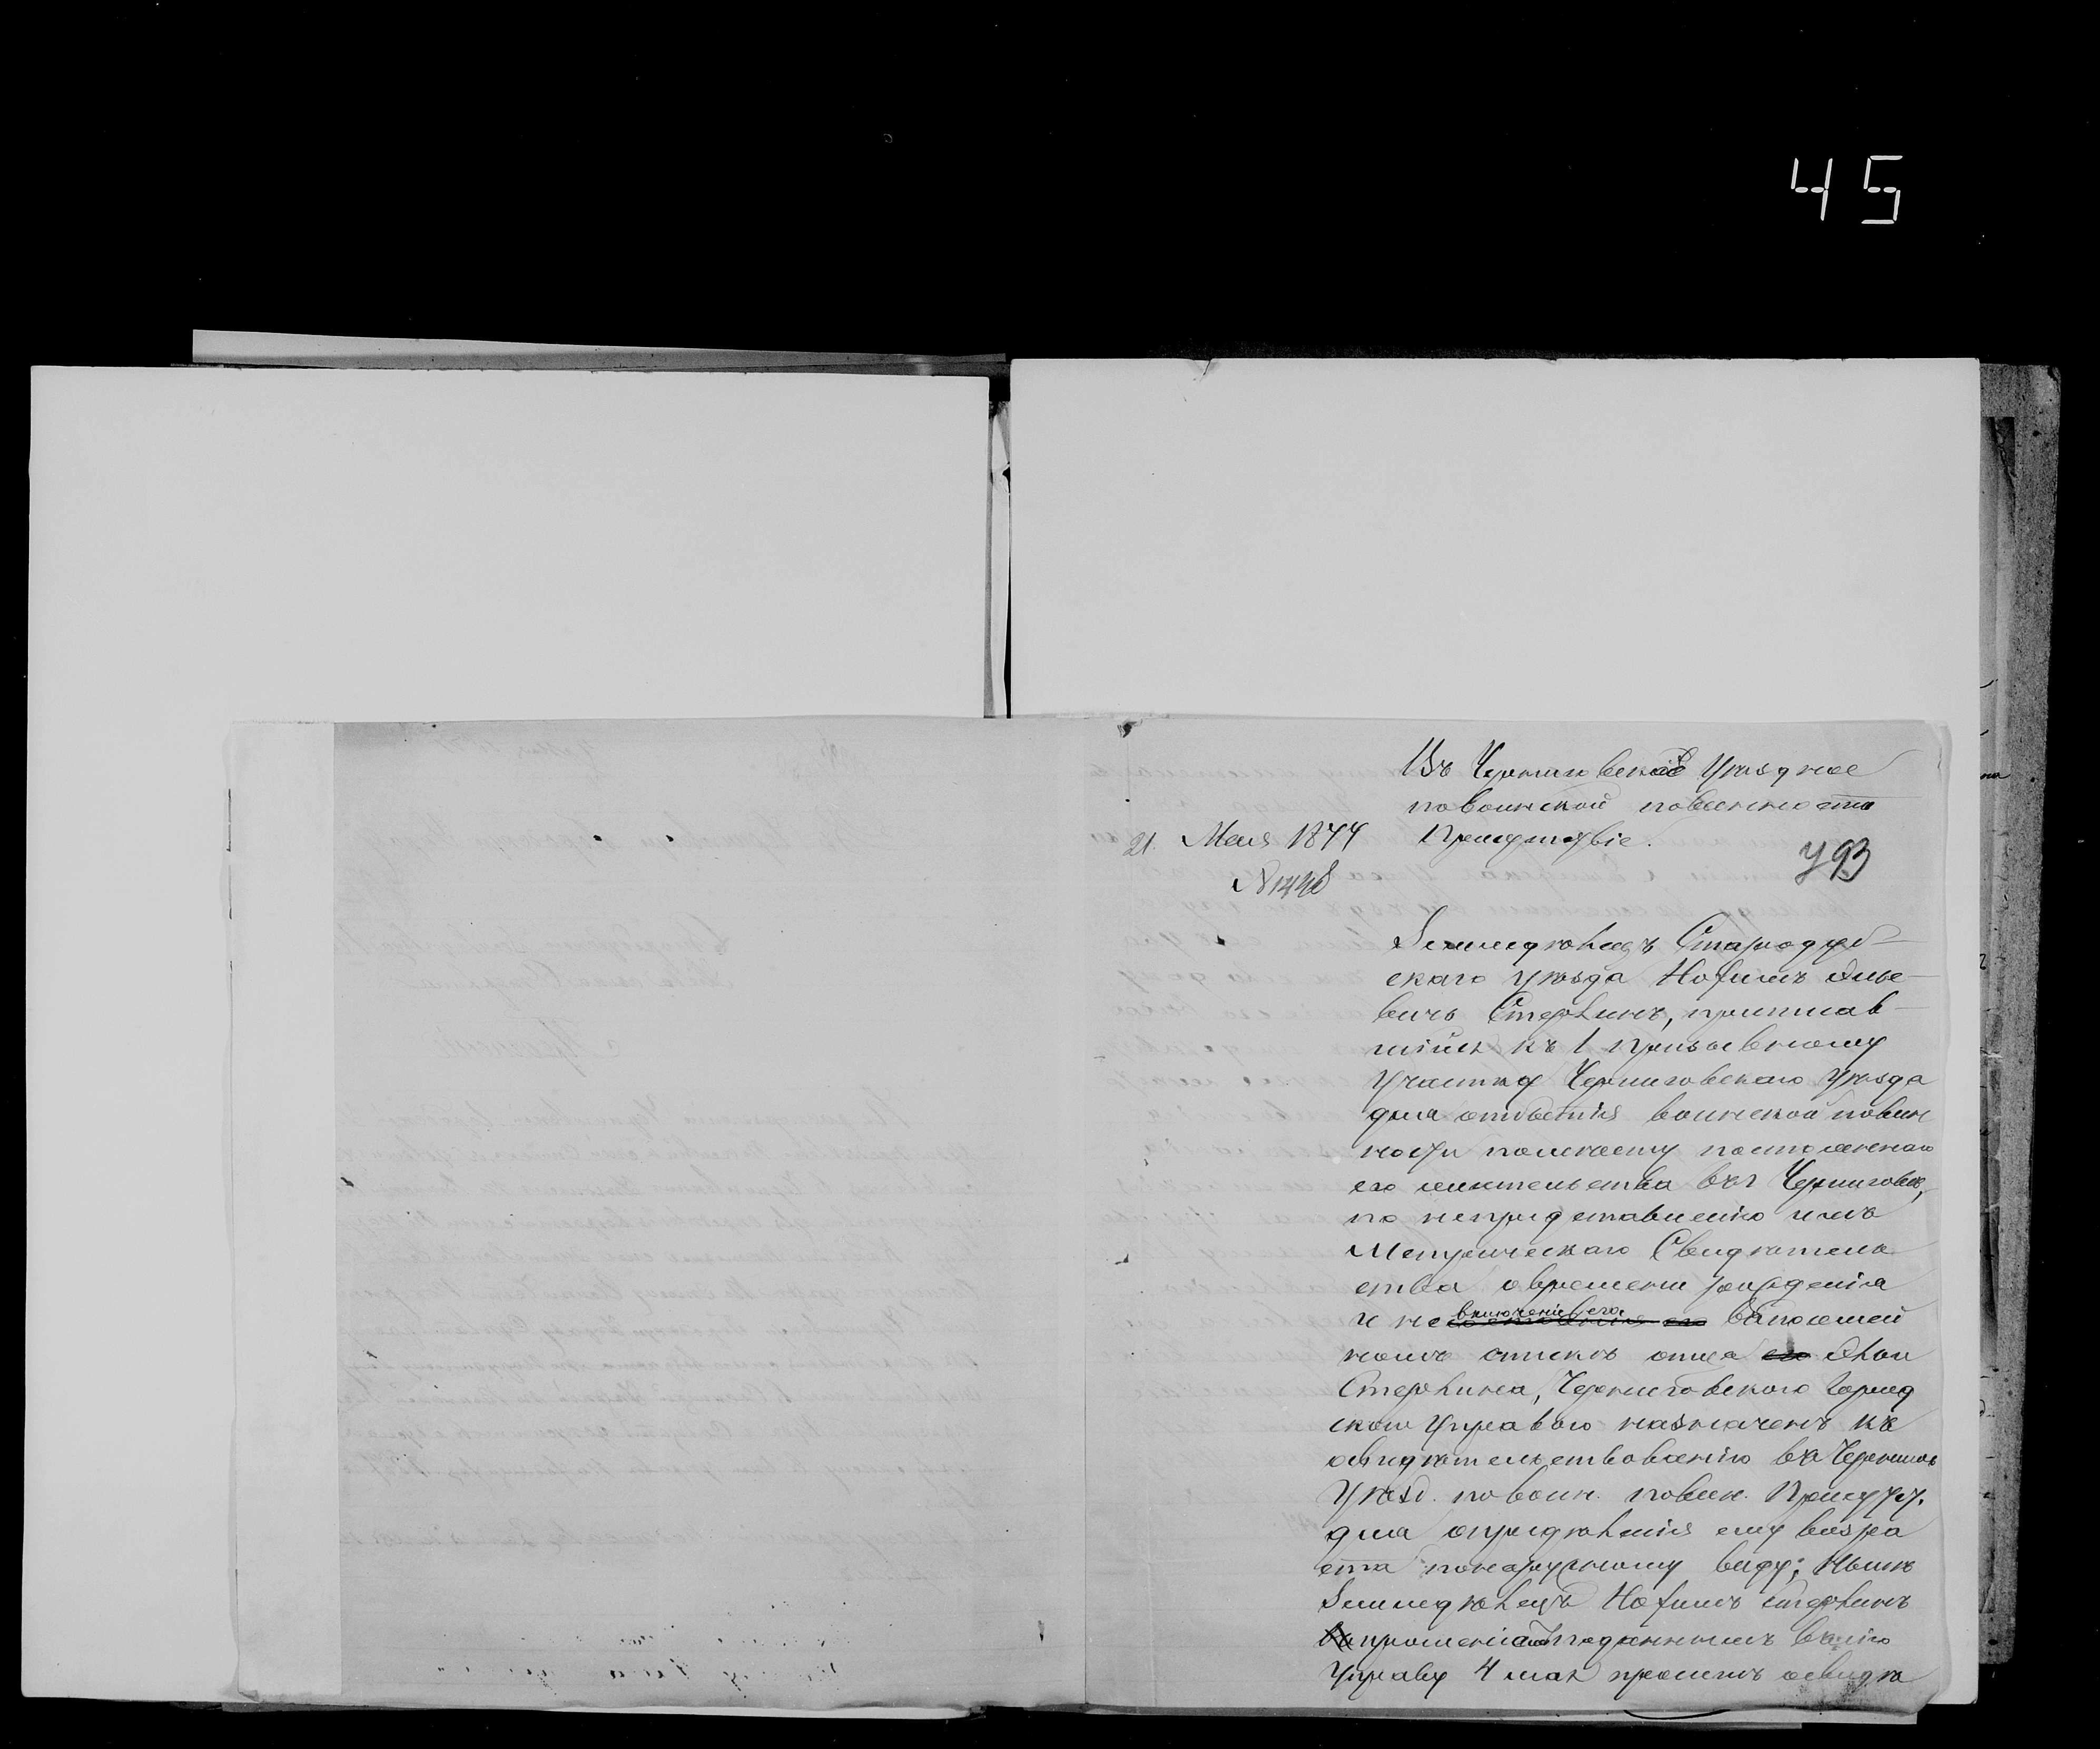 45
Въ Черниговское Уѣздное
по воинской повинности
21 Мая 1877 Присутствіе.
№ 1448
793
Землевладѣлецъ Стародуб-
скаго уѣзда Нохимъ
вичъ Стерлинъ, приписав-
шійся къ 1 призывному
участку Черниговскаго уѣзда
для отбытія воинской повин
ности по мѣсту постояннаго
его жительства въ г Черниговѣ,
по непредставленію имъ
Метрическаго Свидѣтель
ства о времени рожденія
и не включенію его въ посемей
номъ спискѣ отца его
Стерлина, Черниговскою Город
скою Управою назначенъ къ
освидѣтельствованію въ Чернигов
Уѣзд. по воин. повин. Присут.
для опредѣленія ему возра
ста по наружному виду; Нынѣ
Нохимъ Стерлинъ
прошеніемъ поданнымъ въ сію
Управу 4 мая проситъ освидѣ